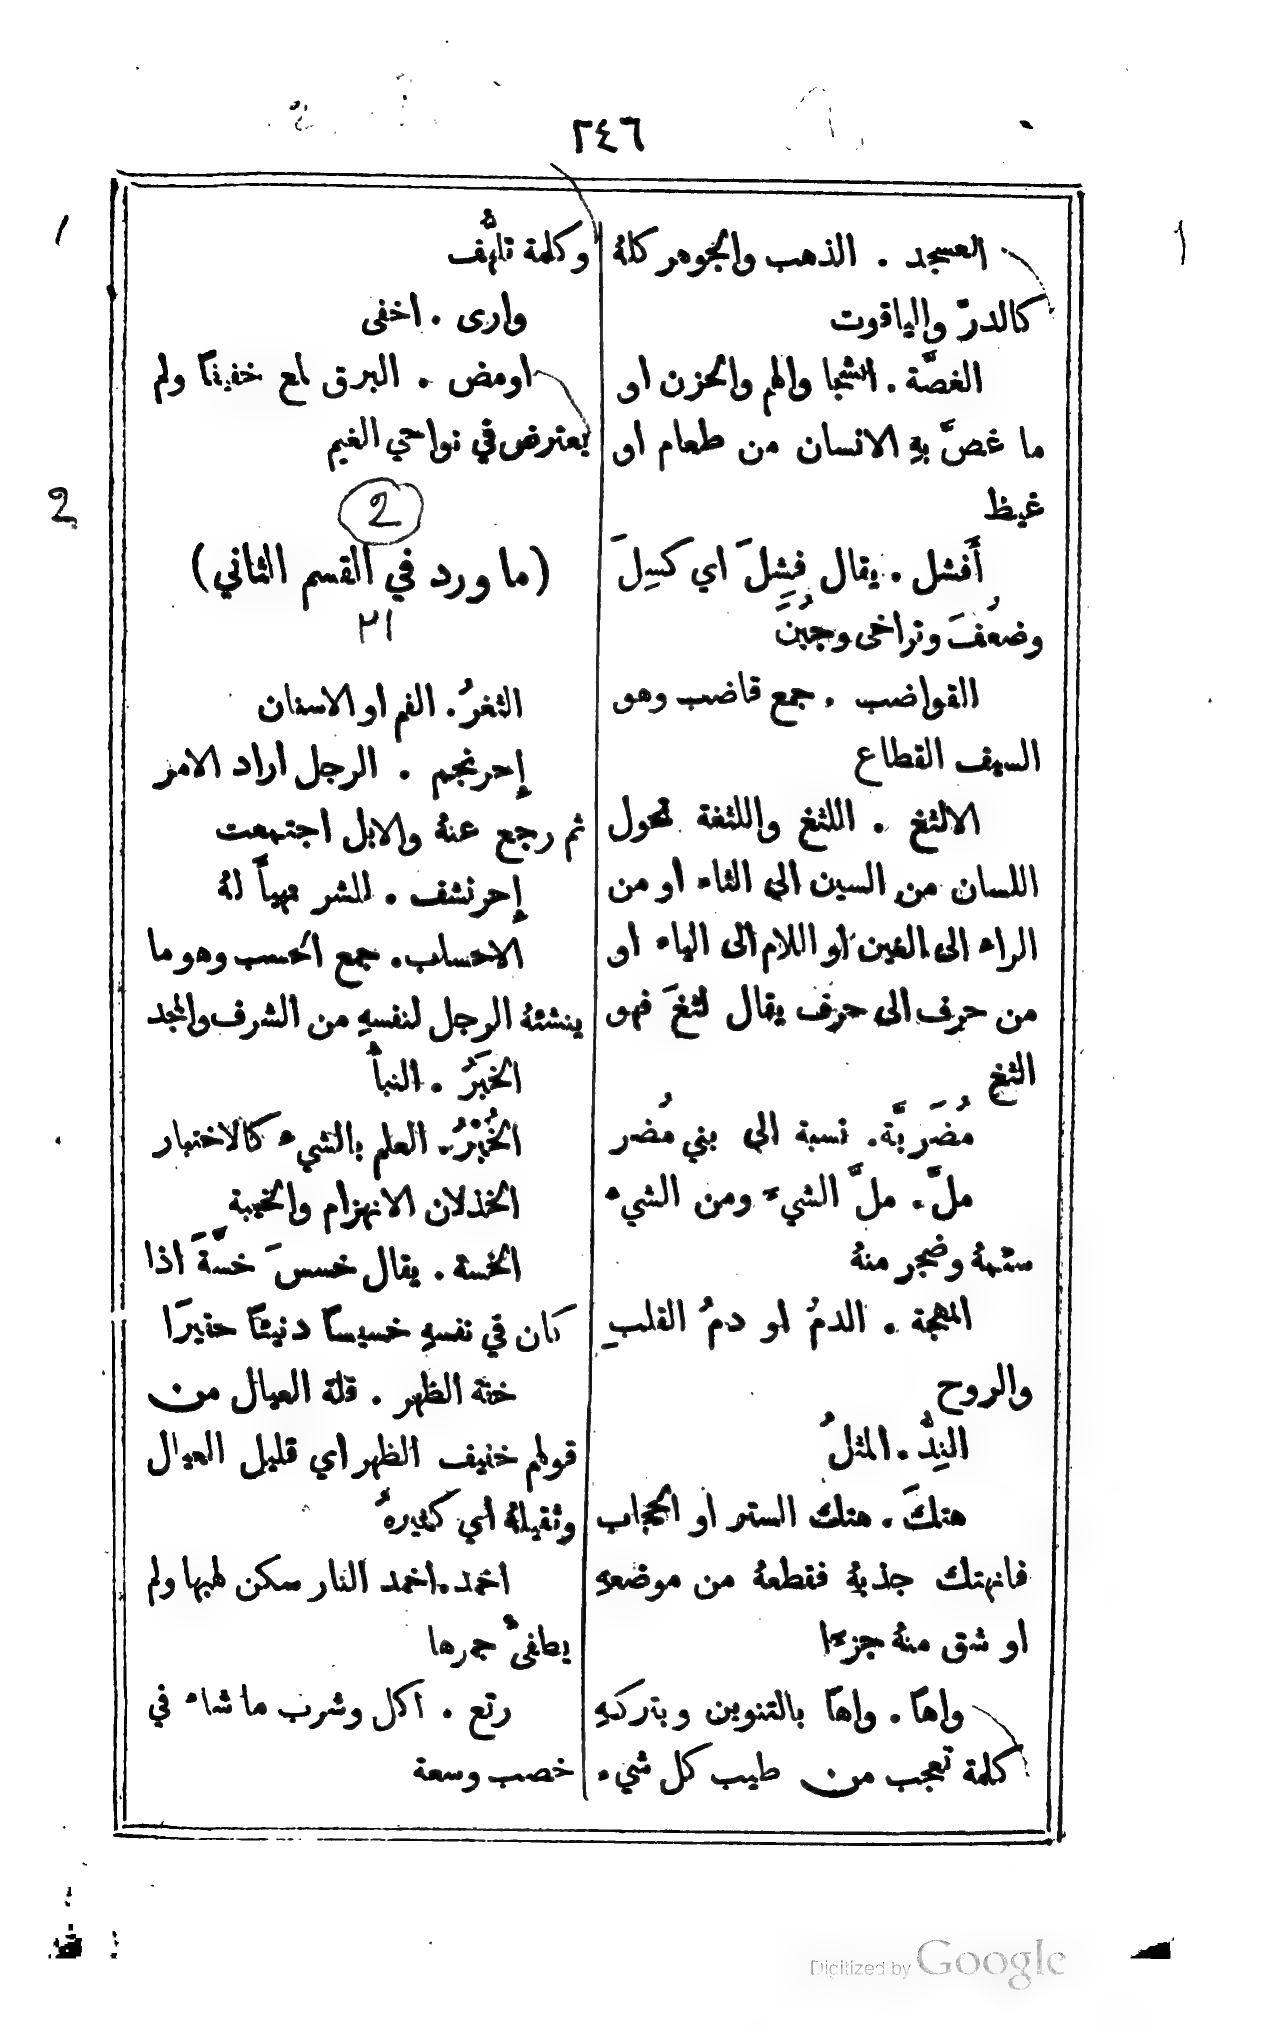 ٢٤٦
العسجد . الذهب والجوهر كلهُ
كالدرّ والياقوت
الغصَّة . الشجا والهم والحزن او
ما غصَّ بهِ الانسان من طعام او
غيظ
أَفشل . يقال فشِلَ اي كسِلَ
وضعُفَ وتراخى وجبُنَ
القواضب . جمع قاضب وهو
السيف القطاع
الالثغ . اللثغ واللثغة تحول
اللسان من السين الى الثاء او من
الراء الى الغين او اللام الى الياء او
من حرف الى حرف يقال لثغَ فهو
الثغ
مُضَريَّة . نسبة الى بني مُضر
ملَّ . ملَّ الشيءَ ومن الشيء
سئمهُ وضجر منهُ
المهجة . الدمُ او دمُ القلبِ
والروح
النِدُّ . المثلُ
هتكَ . هتك الستر او الحجاب
فانهتك جذبهُ فقطعهُ من موضعهِ
او شق منهُ جزءًا
واهًا . واهًا بالتنوين وبتركهِ
كلمة تعجب من طيب كل شيء
وكلمة تلهُّف
وارى . اخفى
اومض . البرق لمع خفيفًا ولم
يعترض في نواحي الغيم
2
(ما ورد في القسم الثاني)
٢١
الثغرُ . الفم او الاسنان
إحرنجم . الرجل اراد الامر
ثم رجع عنهُ والابل اجتمعت
إحرنشف . للشر تهيأَ لهُ
الاحساب . جمع الحسب وهو ما
ينشئهُ الرجل لنفسهِ من الشرف والمجد
الخبَرُ . النبأُ
الخُبْرُ . العلم بالشيء كالاختبار
الخذلان الانهزام والخيبة
الخسة . يقال خسسَ خسَّةَ اذا
كان في نفسهِ خسيسًا دنيئًا حقيرًا
خفة الظهر . قلة العيال من
قولهم خفيف الظهر اي قليل العيال
وثقيلهُ اي كثيرهُ
اخمد . اخمد النار سكن لهبها ولم
يطفئُ جمرها
رتع . اكل وشرب ما شاء في
خصب وسعة
1
2
١
Digitized by Google